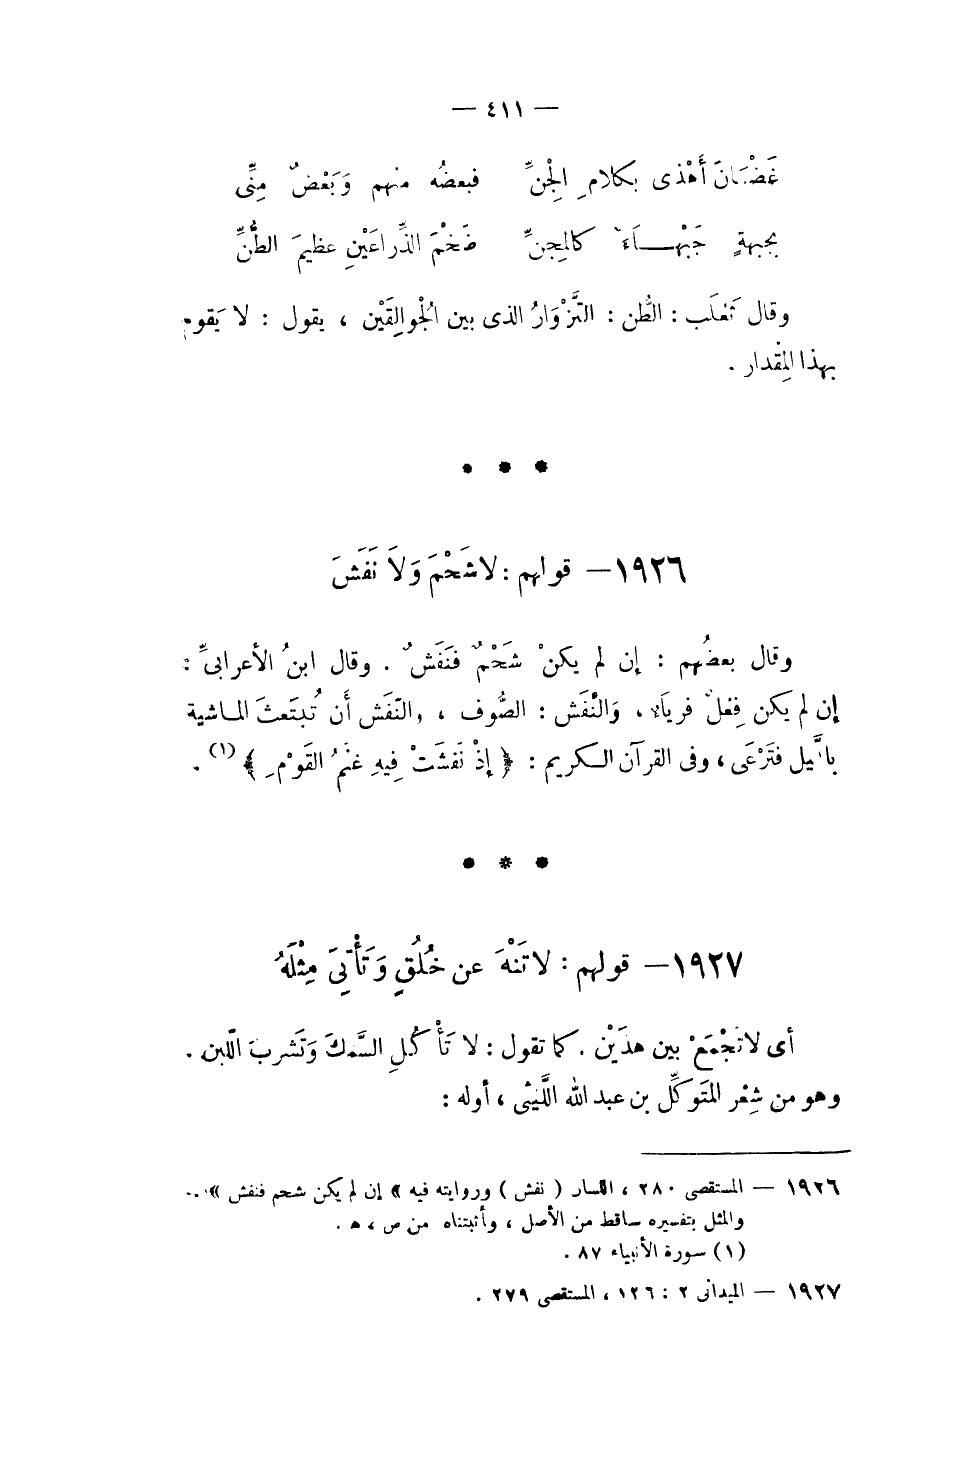 — ٤١١ —
غَضْبَانَ أَهْذى بكلامِ الجِنِّ فبعضُه منهم وَبَعْضٌ مِنِّى
بجبهةٍ جَبْهَاءَ كالمِجنِّ ضَخْمَ الذِّراعَيْنِ عظيمَ الطُّنِّ
وقال ثَعْلَب : الطُّن : التَّزْوَارُ الذى بين الجُوالِقَيْن ، يقول : لا يَقوم
بهذا المِقْدار .
* * *
١٩٢٦ – قولهم : لا شَحْمَ وَلَا نَفَشَ
وقال بعضُهم : إن لم يكنْ شَحْمٌ فنَفَشٌ . وقال ابنُ الأعرابىِّ :
إن لم يكن فِعلٌ فرياَء ، وَالنَّفَش : الصُّوف ، والنَّفَش أن تُبتَعثَ الماشية
بالَّيل فتَرْعَى ، وفى القرآن الكريم : ﴿ إِذْ نَفَشَتْ فِيهِ غنَمُ القَوْمِ ﴾ (١) .
* * *
١٩٢٧ – قولهم : لا تَنْهَ عن خُلُقٍ وَتَأْتِىَ مِثْلَهُ
أى لا تَجْمَعْ بين هذَيْن . كما تقول : لا تَأْكُلِ السَّمكَ وَتَشربَ اللّبن .
وهو من شِعْر المتَوكِّل بن عبد الله اللَّيثى ، أوله :
١٩٢٦ – المستقصى ٢٨٠ ، اللسان ( نفش ) وروايته فيه » إن لم يكن شحم فنفش « .
والمثل بتفسيره ساقط من الأصل ، وأثبتناه من ص ، ه .
(١) سورة الأنبياء ٨٧ .
١٩٢٧ – الميدانى ٢ : ١٢٦ ، المستقصى ٢٧٩ .